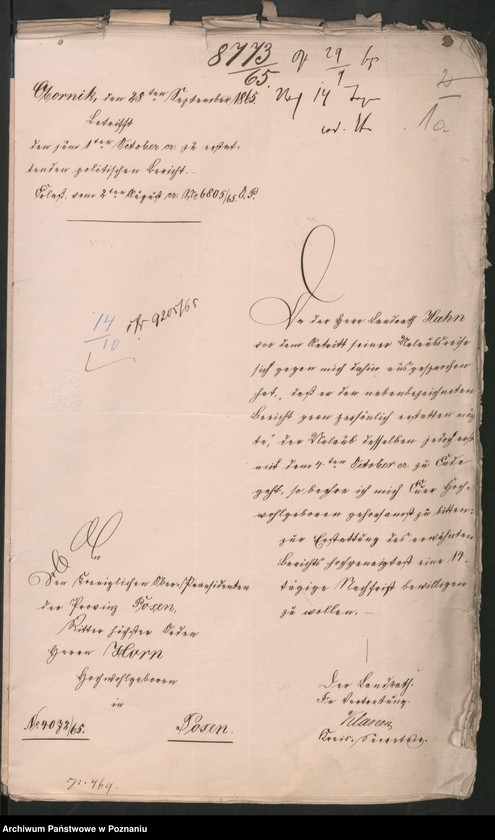 8773/65. 29/9 65
Nach 14 Tagen
Obornik, den 28ten September 1865.
Betrifft
den zum 1ten October cr. zu erstat-
tenden politischen Bericht.
Erlaß vom 2ten August cr. No 6805/65. O.P.
14/10 9205/65
10
Da der Herr Landrath Hahn
vor dem Antritt seiner Urlaubsreise
sich gegen mich dahin ausgesprochen
hat, daß er den nebenbezeichneten
Bericht gern persönlich erstatten möch-
te, der Urlaub desselben jedoch erst
mit dem 4ten October cr. zu Ende
geht, so beehre ich mich Euer Hoch-
wohlgeboren gehorsamst zu bitten:
zur Erstattung des erwähnten
Berichts hochgeneigtest eine 14-
tägige Nachfrist bewilligen
zu wollen. —
An
Den Koeniglichen Ober-Praesidenten
der Provinz Posen,
Ritter höchster Orden
Herrn Horn
Hochwohlgeboren
in
No 4032/65. Posen.
Der Landrath.
In Vertretung.
Kreis-Secretair.
p. 469.
Archiwum Państwowe w Poznaniu